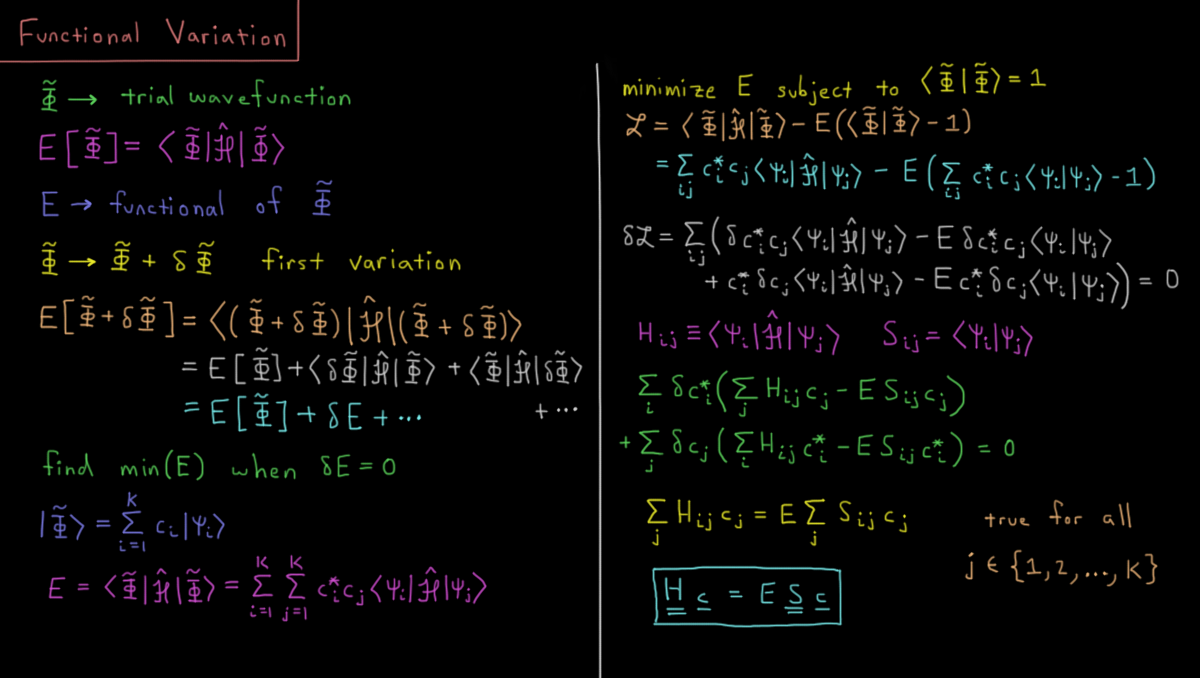 Functional Variation
Φ̃ → trial wavefunction
E[Φ̃] = ⟨Φ̃|Ĥ|Φ̃⟩
E → functional of Φ̃
Φ̃ → Φ̃ + δΦ̃ first variation
E[Φ̃+δΦ̃] = ⟨(Φ̃+δΦ̃)|Ĥ|(Φ̃+δΦ̃)⟩
= E[Φ̃] + ⟨δΦ̃|Ĥ|Φ̃⟩ + ⟨Φ̃|Ĥ|δΦ̃⟩
+ ...
= E[Φ̃] + δE + ...
find min(E) when δE = 0
|Φ̃⟩ = Σ_{i=1}^{K} c_i|ψ_i⟩
E = ⟨Φ̃|Ĥ|Φ̃⟩ = Σ_{i=1}^{K} Σ_{j=1}^{K} c_i^* c_j ⟨ψ_i|Ĥ|ψ_j⟩
minimize E subject to ⟨Φ̃|Φ̃⟩ = 1
ℒ = ⟨Φ̃|Ĥ|Φ̃⟩ - E(⟨Φ̃|Φ̃⟩ - 1)
= Σ_{ij} c_i^* c_j ⟨ψ_i|Ĥ|ψ_j⟩ - E(Σ_{ij} c_i^* c_j ⟨ψ_i|ψ_j⟩ - 1)
δℒ = Σ_{ij} (δc_i^* c_j ⟨ψ_i|Ĥ|ψ_j⟩ - E δc_i^* c_j ⟨ψ_i|ψ_j⟩
+ c_i^* δc_j ⟨ψ_i|Ĥ|ψ_j⟩ - E c_i^* δc_j ⟨ψ_i|ψ_j⟩) = 0
H_{ij} ≡ ⟨ψ_i|Ĥ|ψ_j⟩ S_{ij} = ⟨ψ_i|ψ_j⟩
Σ_i δc_i^* (Σ_j H_{ij} c_j - E S_{ij} c_j)
+ Σ_j δc_j (Σ_i H_{ij} c_i^* - E S_{ij} c_i^*) = 0
Σ_j H_{ij} c_j = E Σ_j S_{ij} c_j
true for all
j ∈ {1,2,...,K}
H c = E S c